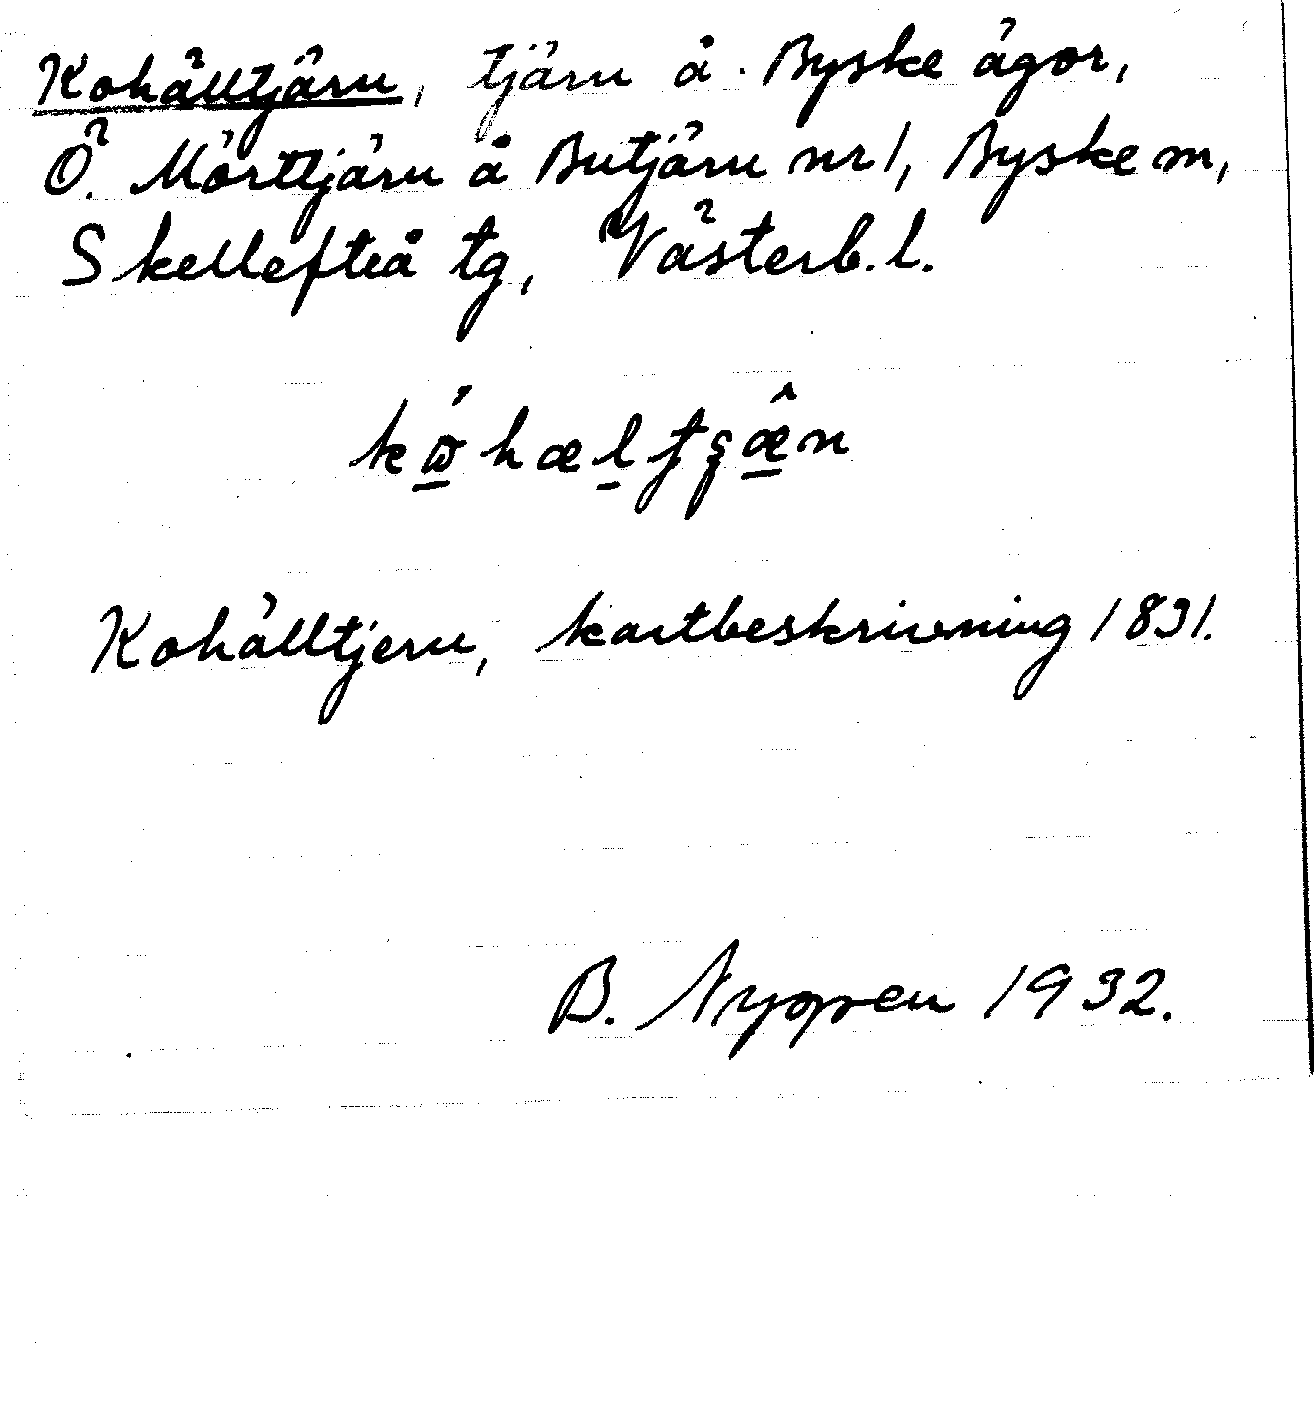 Kohälltjärn, tjärn å Byske ägor,
Ö. Mörttjärn å Butjärn nr 1, Byske sn,
Skellefteå tg, Västerb. l.
Kohälltjern, kartbeskrivning 1831.
B. Nyppen 1932.